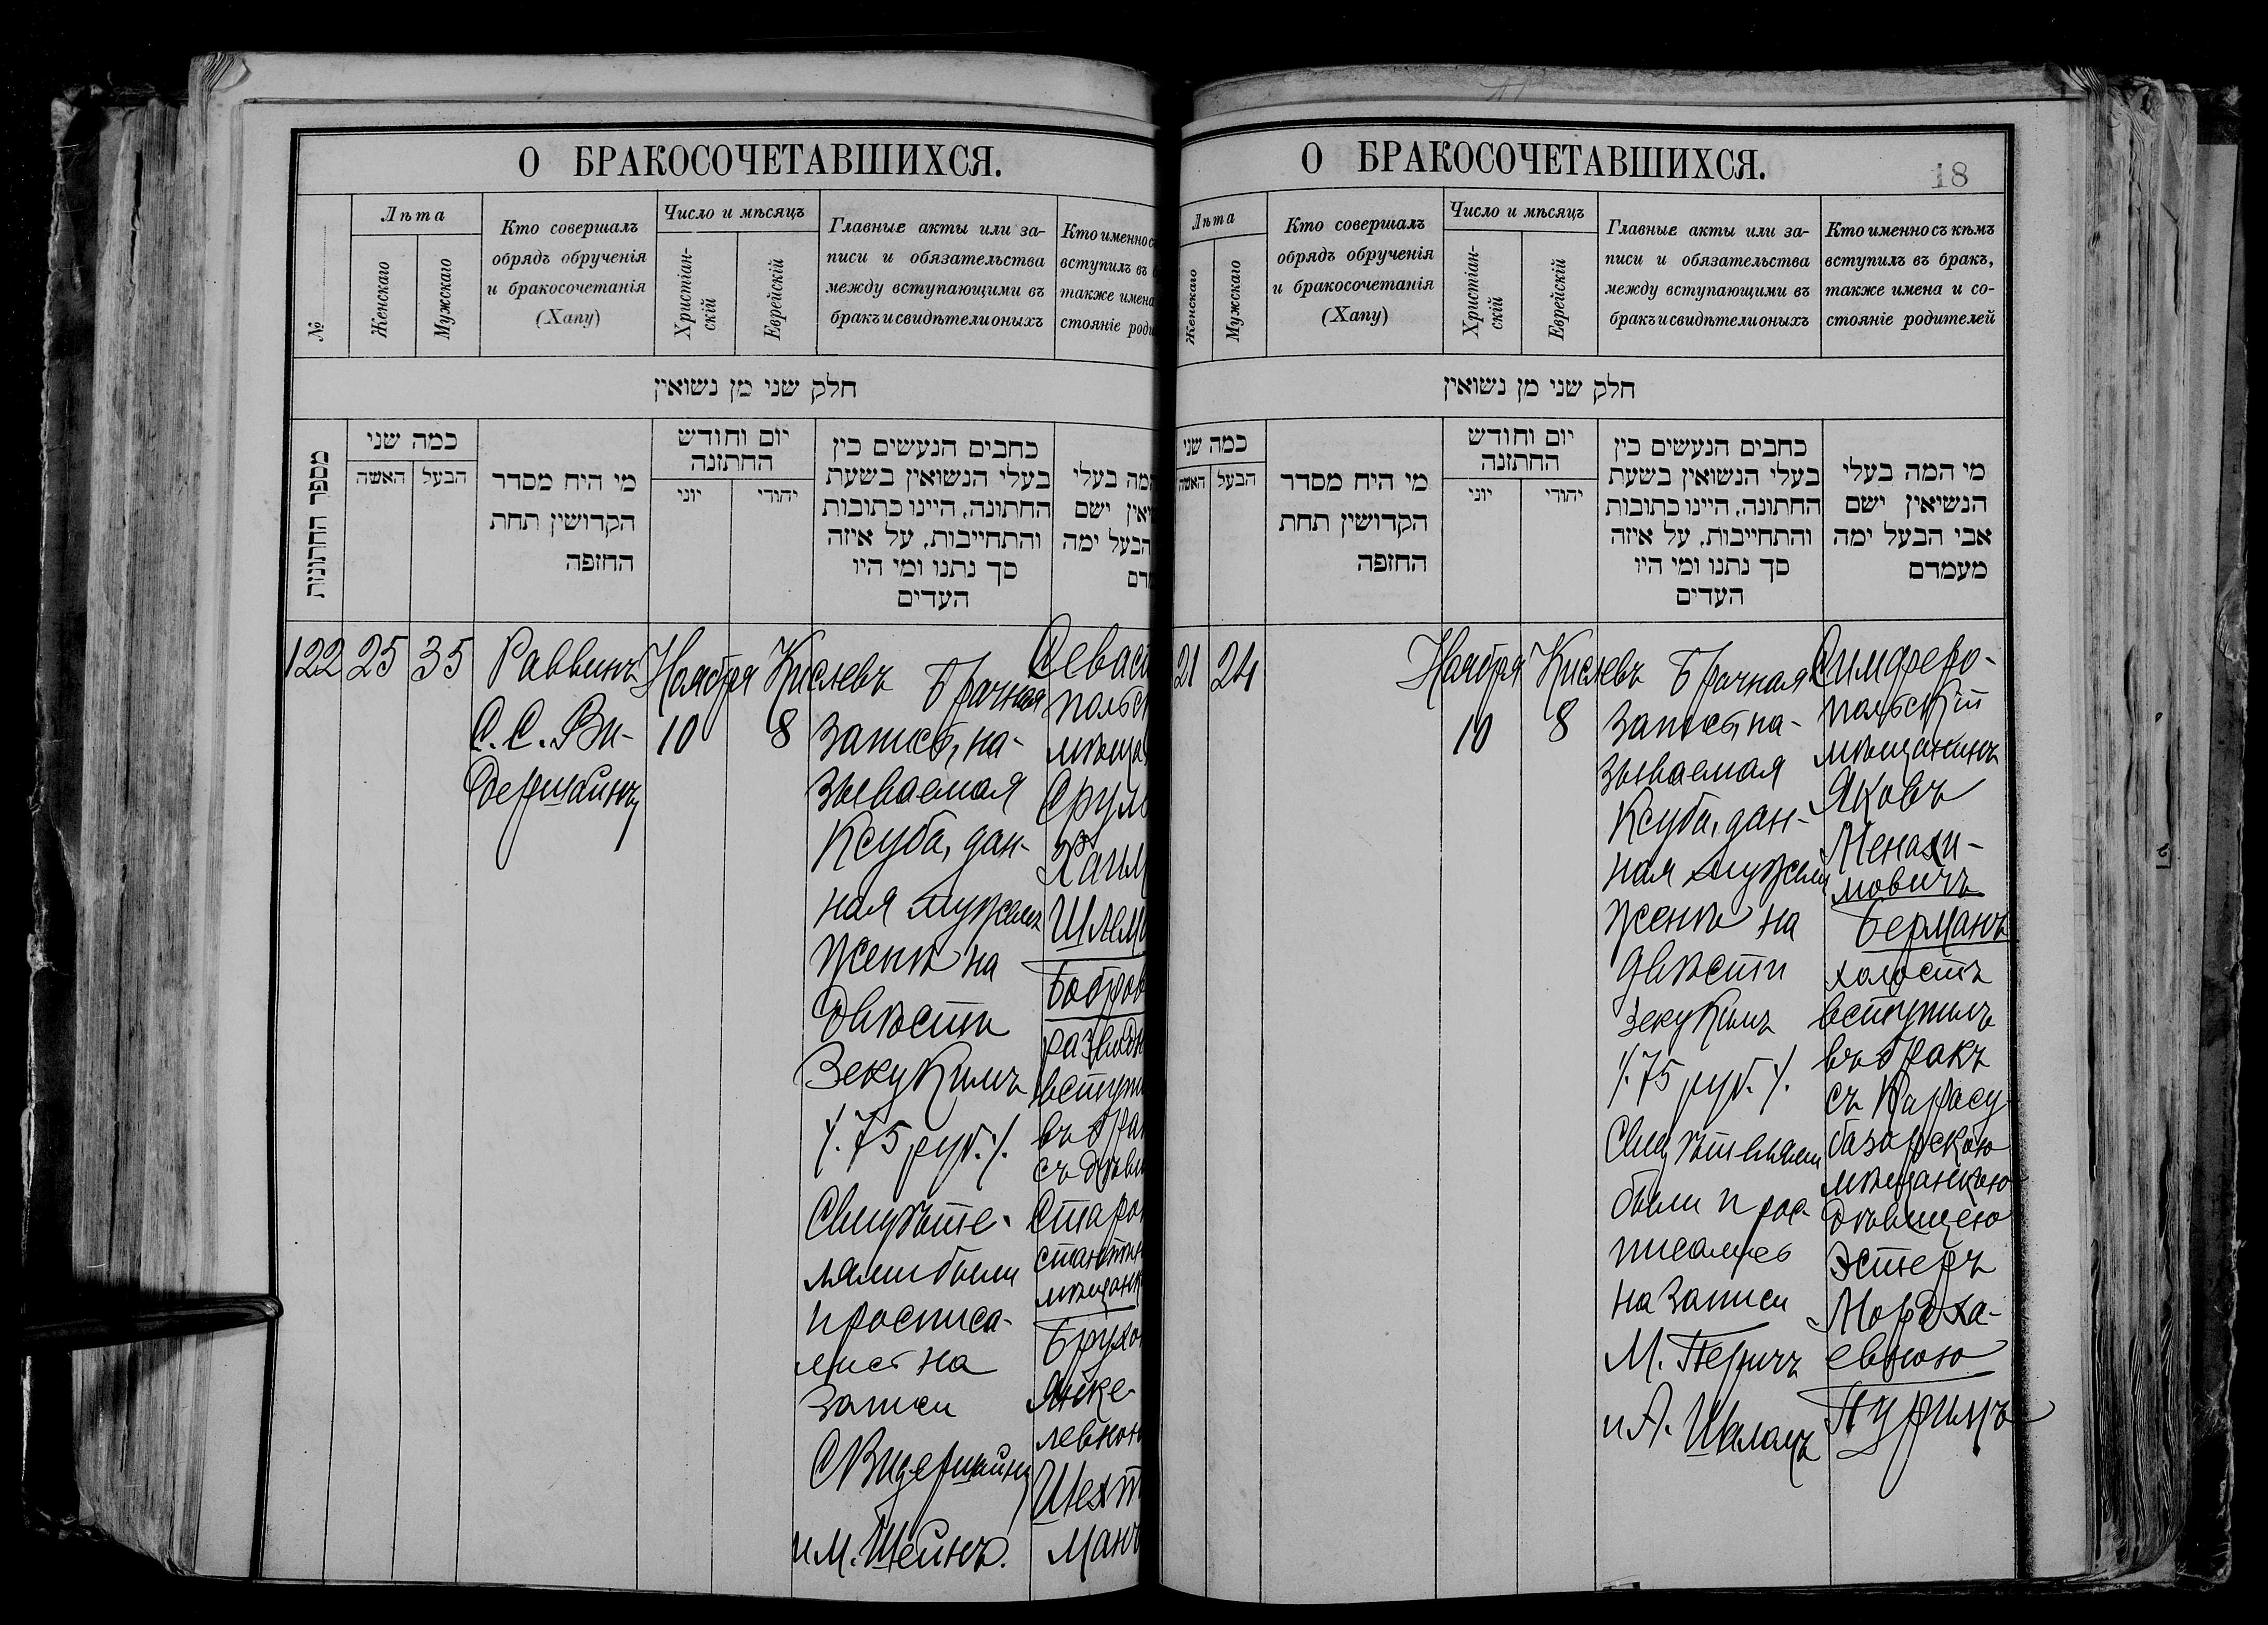 О БРАКОСОЧЕТАВШИХСЯ.
№
Лѣта
Женскаго
Мужскаго
Кто совершалъ
обрядъ обрученія
и бракосочетанія
(Хапу)
Число и мѣсяцъ
Христіан-
скій
Еврейскій
Главные акты или за-
писи и обязательства
между вступающими въ
бракъ и свидѣтели оныхъ
Кто именно съ
вступилъ въ
также имена
стояніе роди
חלק שני מן נשואין
מספר החתונות
כמה שני
האשה
הבעל
מי היח מסדר
הקדושין תחת
החזפה
יום וחודש
החתזנה
יוני
יהודי
כחבים הנעשים כין
בעלי הנשואין בשעת
החתונה, היינו כתובות
והתחייבות, על איזה
סך נתנו ומי היו
העדים
המה בעלי
יאין ישם
הבעל ימה
מדם
122
25
35
Раввинъ
С. С. Ви-
дершайнъ
Ноября
10
Кислевъ
8
Брачная
запись, на-
зываемая
Ксуба, дан-
ная мужемъ
женѣ на
двѣсти
Зекукимъ
/. 75 руб. /.
Свидѣте-
лями были
и росписа-
лись на
записи
С Видершайнъ
и М. Шейнъ.
Севаст
польск
мѣща
Сруль
Хаим
Шлем
Бобров
разведен
вступи
въ бра
съ дѣви
Старо
стант
мѣщанк
Брухо
Янке-
левною
Шехт
манъ
О БРАКОСОЧЕТАВШИХСЯ.
18
Лѣта
Женскаго
Мужскаго
Кто совершалъ
обрядъ обрученія
и бракосочетанія
(Хапу)
Число и мѣсяцъ
Христіан-
скій
Еврейскій
Главные акты или за-
писи и обязательства
между вступающими въ
бракъ и свидѣтели оныхъ
Кто именно съ кѣмъ
вступилъ въ бракъ,
также имена и со-
стояніе родителей
חלק שני מן נשואין
כמה שני
האשה
הבעל
מי היח מסדר
הקדושין תחת
החזפה
יום וחודש
החתזנה
יוני
יהודי
כחבים הנעשים כין
בעלי הנשואין בשעת
החתונה, היינו כתובות
והתחייבות, על איזה
סך נתנו ומי היו
העדים
מי המה בעלי
הנשיאין ישם
אבי הבעל ימה
מעמדם
21
24
Ноября
10
Кислевъ
8
Брачная
запись, на-
зываемая
Ксуба, дан-
ная мужемъ
женѣ на
двѣсти
зекукимъ
/. 75 руб. /.
Свидѣтелями
были и рос-
писались
на записи
М. Перичъ
и А. Шаломъ
Симферо-
польскій
мѣщанинъ
Яковъ
Менахи-
мовичъ
Берманъ
холостъ
вступилъ
въ бракъ
съ Карасу-
базарскою
мѣщанкою
дѣвицею
Эстеръ
Мордха-
евною
Пуримъ